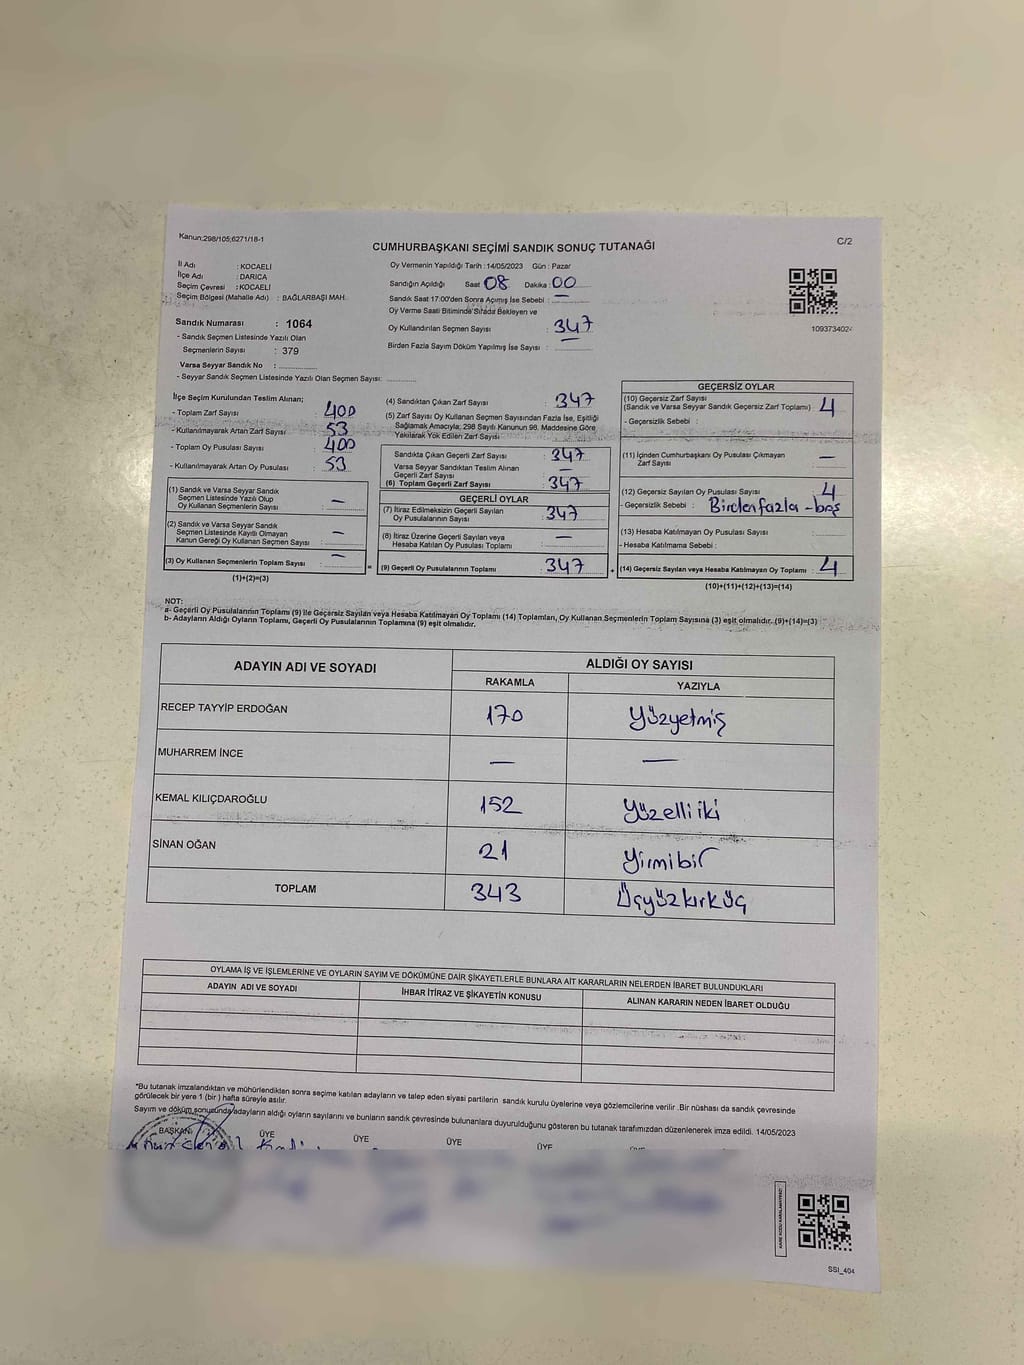 Kanun:298/105;6271/18-1
C/2
CUMHURBAŞKANI SEÇİMİ SANDIK SONUÇ TUTANAĞI
İl Adı : KOCAELİ
İlçe Adı : DARICA
Seçim Çevresi : KOCAELİ
Seçim Bölgesi (Mahalle Adı) : BAĞLARBAŞI MAH.
Sandık Numarası : 1064
- Sandık Seçmen Listesinde Yazılı Olan
Seçmenlerin Sayısı : 379
Varsa Seyyar Sandık No :
- Seyyar Sandık Seçmen Listesinde Yazılı Olan Seçmen Sayısı:
Oy Vermenin Yapıldığı Tarih :14/05/2023 Gün : Pazar
Sandığın Açıldığı Saat 08 Dakika 00
Sandık Saat 17:00'den Sonra Açımış İse Sebebi : —
Oy Verme Saati Bitiminde Sırada Bekleyen ve
Oy Kullandırılan Seçmen Sayısı : 347
Birden Fazla Sayım Döküm Yapılmış İse Sayısı : —
1093734024
İlçe Seçim Kurulundan Teslim Alınan;
- Toplam Zarf Sayısı : 400
- Kullanılmayarak Artan Zarf Sayısı : 53
- Toplam Oy Pusulası Sayısı : 400
- Kullanılmayarak Artan Oy Pusulası : 53
(1) Sandık ve Varsa Seyyar Sandık
Seçmen Listesinde Yazılı Olup
Oy Kullanan Seçmenlerin Sayısı : —
(2) Sandık ve Varsa Seyyar Sandık
Seçmen Listesinde Kayıtlı Olmayan
Kanun Gereği Oy Kullanan Seçmen Sayısı : —
(3) Oy Kullanan Seçmenlerin Toplam Sayısı : —
(1)+(2)=(3)
(4) Sandıktan Çıkan Zarf Sayısı : 347
(5) Zarf Sayısı Oy Kullanan Seçmen Sayısından Fazla İse, Eşitliği
Sağlamak Amacıyla; 298 Sayılı Kanunun 98. Maddesine Göre
Yakılarak Yok Edilen Zarf Sayısı :
Sandıkta Çıkan Geçerli Zarf Sayısı : 347
Varsa Seyyar Sandıktan Teslim Alınan
Geçerli Zarf Sayısı : —
(6) Toplam Geçerli Zarf Sayısı : 347
GEÇERLİ OYLAR
(7) İtiraz Edilmeksizin Geçerli Sayılan
Oy Pusulalarının Sayısı : 347
(8) İtiraz Üzerine Geçerli Sayılan veya
Hesaba Katılan Oy Pusulası Toplamı : —
= (9) Geçerli Oy Pusulalarının Toplamı : 347
GEÇERSİZ OYLAR
(10) Geçersiz Zarf Sayısı
(Sandık ve Varsa Seyyar Sandık Geçersiz Zarf Toplamı) : 4
- Geçersizlik Sebebi :
(11) İçinden Cumhurbaşkanı Oy Pusulası Çıkmayan
Zarf Sayısı : —
(12) Geçersiz Sayılan Oy Pusulası Sayısı : 4
- Geçersizlik Sebebi : Birden fazla - boş
(13) Hesaba Katılmayan Oy Pusulası Sayısı :
- Hesaba Katılmama Sebebi :
+ (14) Geçersiz Sayılan veya Hesaba Katılmayan Oy Toplamı : 4
(10)+(11)+(12)+(13)=(14)
NOT:
a- Geçerli Oy Pusulalarının Toplamı (9) İle Geçersiz Sayılan veya Hesaba Katılmayan Oy Toplamı (14) Toplamları, Oy Kullanan Seçmenlerin Toplam Sayısına (3) eşit olmalıdır. (9)+(14)=(3)
b- Adayların Aldığı Oyların Toplamı, Geçerli Oy Pusulalarının Toplamına (9) eşit olmalıdır.
ADAYIN ADI VE SOYADI ALDIĞI OY SAYISI
RAKAMLA YAZIYLA
RECEP TAYYİP ERDOĞAN 170 yüzyetmiş
MUHARREM İNCE — —
KEMAL KILIÇDAROĞLU 152 yüzelli iki
SİNAN OĞAN 21 yirmibir
TOPLAM 343 Üçyüzkırküç
OYLAMA İŞ VE İŞLEMLERİNE VE OYLARIN SAYIM VE DÖKÜMÜNE DAİR ŞİKAYETLERLE BUNLARA AİT KARARLARIN NELERDEN İBARET BULUNDUKLARI
ADAYIN ADI VE SOYADI İHBAR İTİRAZ VE ŞİKAYETİN KONUSU ALINAN KARARIN NEDEN İBARET OLDUĞU
*Bu tutanak imzalandıktan ve mühürlendikten sonra seçime katılan adayların ve talep eden siyasi partilerin sandık kurulu üyelerine veya gözlemcilerine verilir .Bir nüshası da sandık çevresinde
görülecek bir yere 1 (bir ) hafta süreyle asılır.
Sayım ve döküm sonusunda adayların aldığı oyların sayılarını ve bunların sandık çevresinde bulunanlara duyurulduğunu gösteren bu tutanak tarafımızdan düzenlenerek imza edildi. 14/05/2023
BAŞKAN ÜYE ÜYE ÜYE ÜYE
KARE KODU KARALAMAYINIZ!
SSI_404